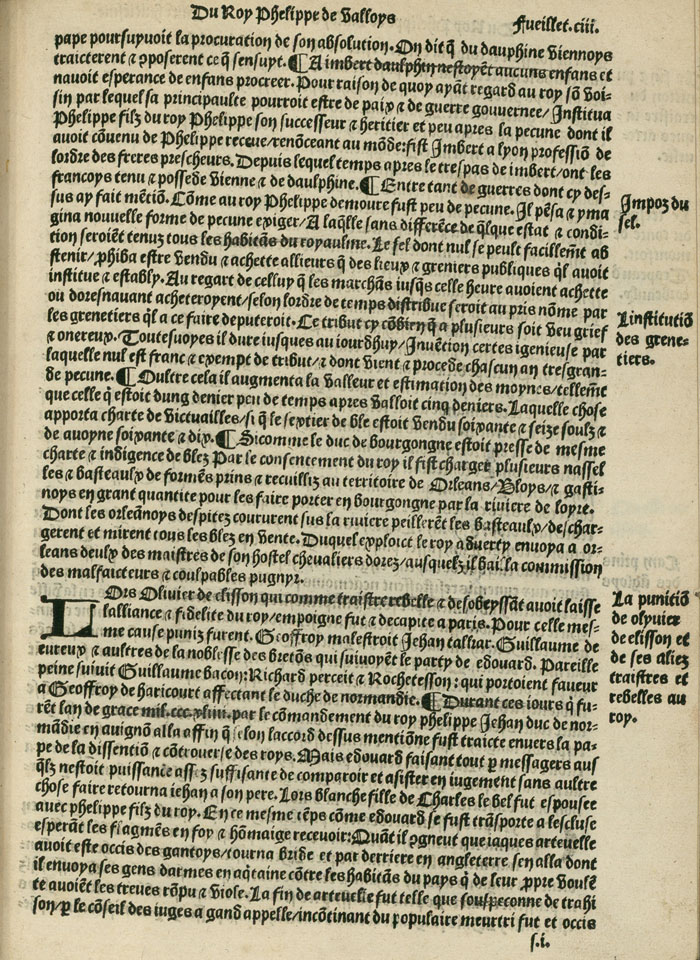 Du Roy Phelippe de Valloys
Fueillet.ciii.
pape poursuyuoit la procuration de son absolution. On dit q̃ du dauphine Viennoys
traicterent ⁊ pposerent ce q̃ sensuyt. ¶ A imbert daulphin nestoyẽt aucuns enfans et
nauoit esperance de enfans procreer. Pour raison de quoy ayãt regard au roy sõ voi-
sin par lequel sa principaulte pourroit estre de paix ⁊ de guerre gouuernee/ Institua
Phelippe filz du roy Phelippe son successeur ⁊ heritier et peu apres la pecune dont il
auoit cõuenu de Phelippe receue/renõceant au mõde:fist Imbert a lyon professiõ de
lordre des freres prescheurs. Depuis lequel temps apres le trespas de imbert/ont les
francoys tenu ⁊ possede Vienne ⁊ de daulphine. ¶ Entre tant de guerres dont cy des-
sus ay fait mẽtiõ. Cõme au roy Phelippe demoure fust peu de pecune. Il pẽsa ⁊ yma
gina nouuelle forme de pecune exiger/ A laq̃lle sans differẽce de q̃lque estat ⁊ condi-
tion seroiẽt tenuz tous les habitãs du royaulme. Le sel dont nul se peult facillemẽt ab
stenir/ phiba estre vendu ⁊ achette allieurs q̃ des lieux ⁊ greniers publiques q̃l auoit
institue ⁊ estably. Au regard de celluy q̃ les marchãs iusq̃s celle heure auoient achette
ou doresnauant acheteroyent/selon lordre de temps distribue seroit au pris nõme par
les grenetiers q̃l a ce faire deputeroit. Ce tribut cy cõbien q̃ a plusieurs soit veu grief
⁊ onereux. Toutesuoyes il dure iusques au iourdhuy/ Inuẽtion certes igenieuse par
laquelle nul est franc ⁊ exempt de tribut/⁊ dont vient ⁊ procede chascun an tresgran-
de pecune. ¶ Oultre cela il augmenta la valleur et estimation des moynes/tellemẽt
que celle q̃ estoit dung denier peu de temps apres valloit cinq deniers. Laquelle chose
apporta charte de victuailles/si q̃ le sextier de ble estoit vendu soixante ⁊ seize soulz ⁊
de auoyne soixante ⁊ dix. ¶ Sicomme le duc de bourgongne estoit presse de mesme
charte ⁊ indigence de blez Par le consentement du roy il fist charger plusieurs nassel
les ⁊ basteaulx de formẽs prins ⁊ recuilliz au territoire de Orleans/Bloys/⁊ gasti-
noys en grant quantite pour les faire porter en bourgongne par la riuiere de loyre.
Dont les orleãnoys despitez coururent sus la riuiere peillerẽt les basteaulx/deschar-
gerent et mirent tous les blez en vente. Duquel exploict le roy aduerty enuoya a or-
leans deulx des maistres de son hostel cheualiers dorez/ausquelz il bailla commission
des malfaicteurs ⁊ coulpables pugnyr.
LOrs Oliuier de clisson qui comme traistre rebelle ⁊ desobeyssãt auoit laisse
lalliance ⁊ fidelite du roy/empoigne fut ⁊ decapite a paris. Pour celle mes-
me cause puniz furent. Geoffroy malestroit Jehan talliar. Guillaume de
eureux ⁊ aultres de la noblesse des bretõs qui suiuoyent le party de edouard. Pareille
peine suiuit Guillaume bacon: Richard perceit ⁊ Rochetesson : qui portoient faueur
a Geoffroy de haricourt affectant le duche de normandie. ¶ Durant ces iours q̃ fu-
rẽt lan de grace mil.ccc.xliiii. par le cõmandement du roy phelippe Jehan duc de nor-
mãdie en auignõ alla affin q̃ selon laccord dessus mentiõne fust traicte enuers la pa-
pe de la dissentiõ ⁊ cõtrouerse des roys. Mais edouard faisant tout p messagers aus
q̃lz nestoit puissance assez suffisante de comparoir et asister en iugement sans aultre
chose faire retourna iehan a son pere. Lors blanche fille de Charles le bel fut espousee
auec phelippe filz du roy. En ce mesme tẽps cõme edouard se fust trãsporte a lescluse
esperãt les flagmẽs en foy ⁊ hõmaige receuoir: Quãt il ꝯgneut que iaques arteuelle
auoit este occis des gantoys/tourna bride et par derriere en angleterre sen alla dont
il enuoya ses gens darmes en aq̃taine cõtre les habitãs du pays q̃ de leur ppre voulẽ
te auoiẽt les treues rõpu ⁊ viole. La fin de artruelle fut telle que souspeconne de trahi
son/p le cõseil des iuges a gand appelle/incõtinant du populaire meurtri fut et occis
s.i.
Impoz du
sel.
Linstitutiõ
des grene-
tiers.
La punitiõ
de olyuier
de clisson et
de ses aliez
traistres et
rebelles au
roy.